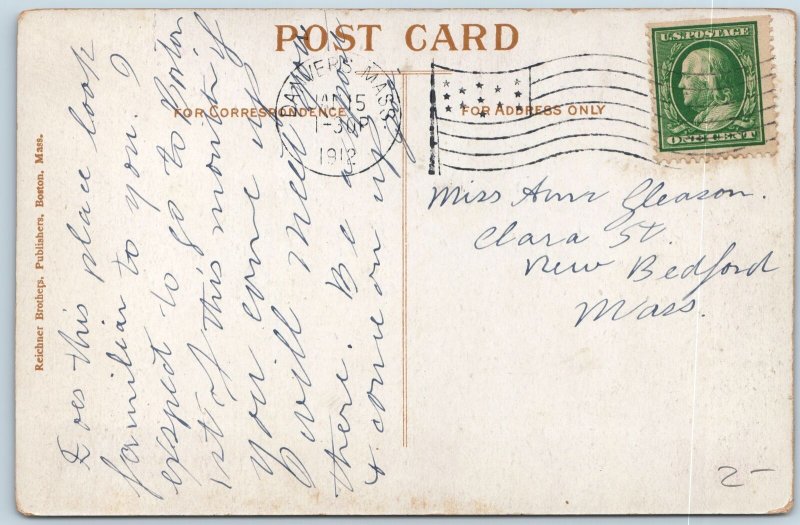 POST CARD
FOR CORRESPONDENCE
FOR ADDRESS ONLY
DANVERS MASS.
JAN 15
1-30P
1912
U.S. POSTAGE
ONE CENT
Miss Anna Gleason.
Clara St.
New Bedford
Mass.
Does this place look
familiar to you. I
expect to go to Boston
1st of this month if
you come up
I will meet you
there. Be a
& come on up
Reichner Brothers, Publishers, Boston, Mass.
2-